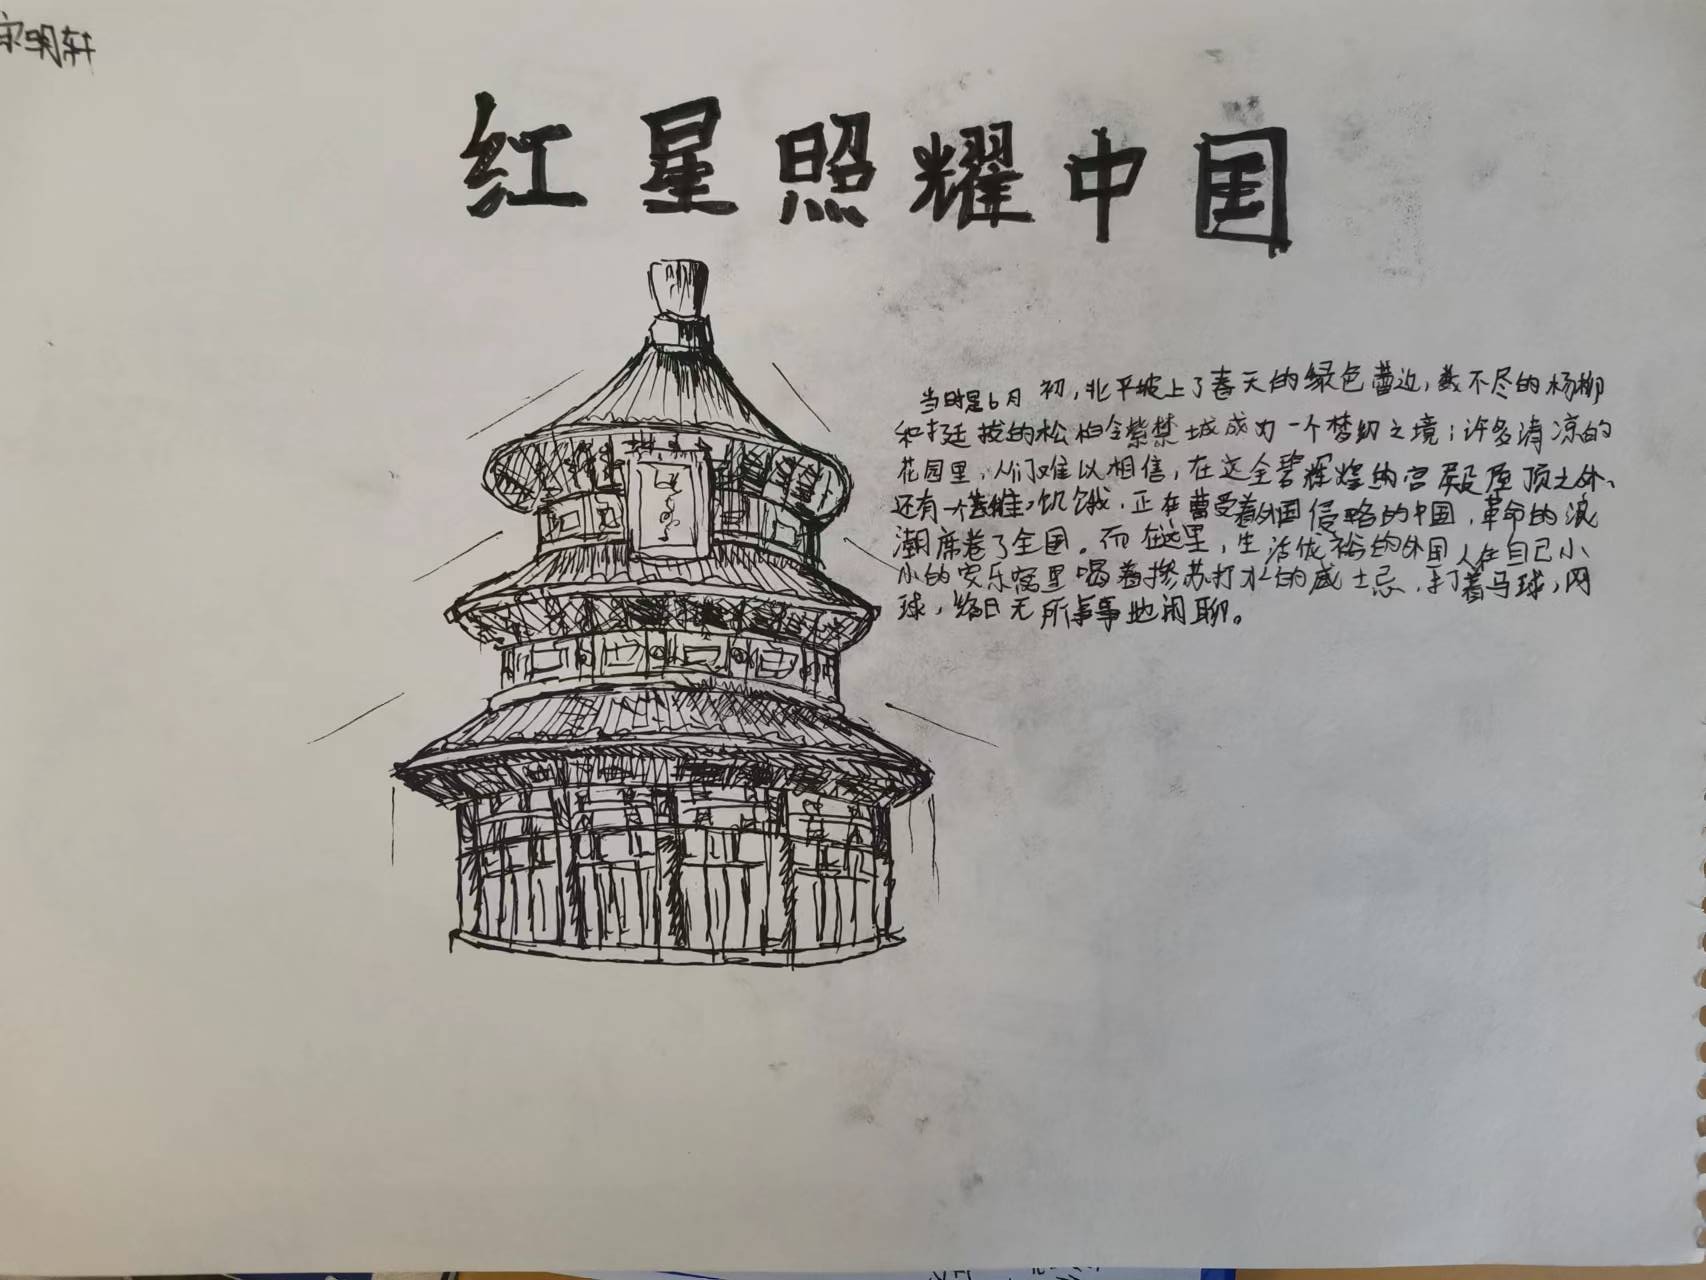 明轩
红星照耀中国
当时是6月初,北平披上了春天的绿色蕾边,数不尽的杨柳
和挺拔的松柏令紫禁城成为一个梦幻之境;许多清凉的
花园里,人们难以相信,在这金碧辉煌的宫殿屋顶之外,
还有一个 饥饿,正在曹受着外国侵略的中国,革命的浪
潮席卷了全国。而在这里,生活优裕的外国人在自己小
小的安乐窝里喝着掺苏打水的威士忌,打着马球,网
球,终日无所事事地闲聊。